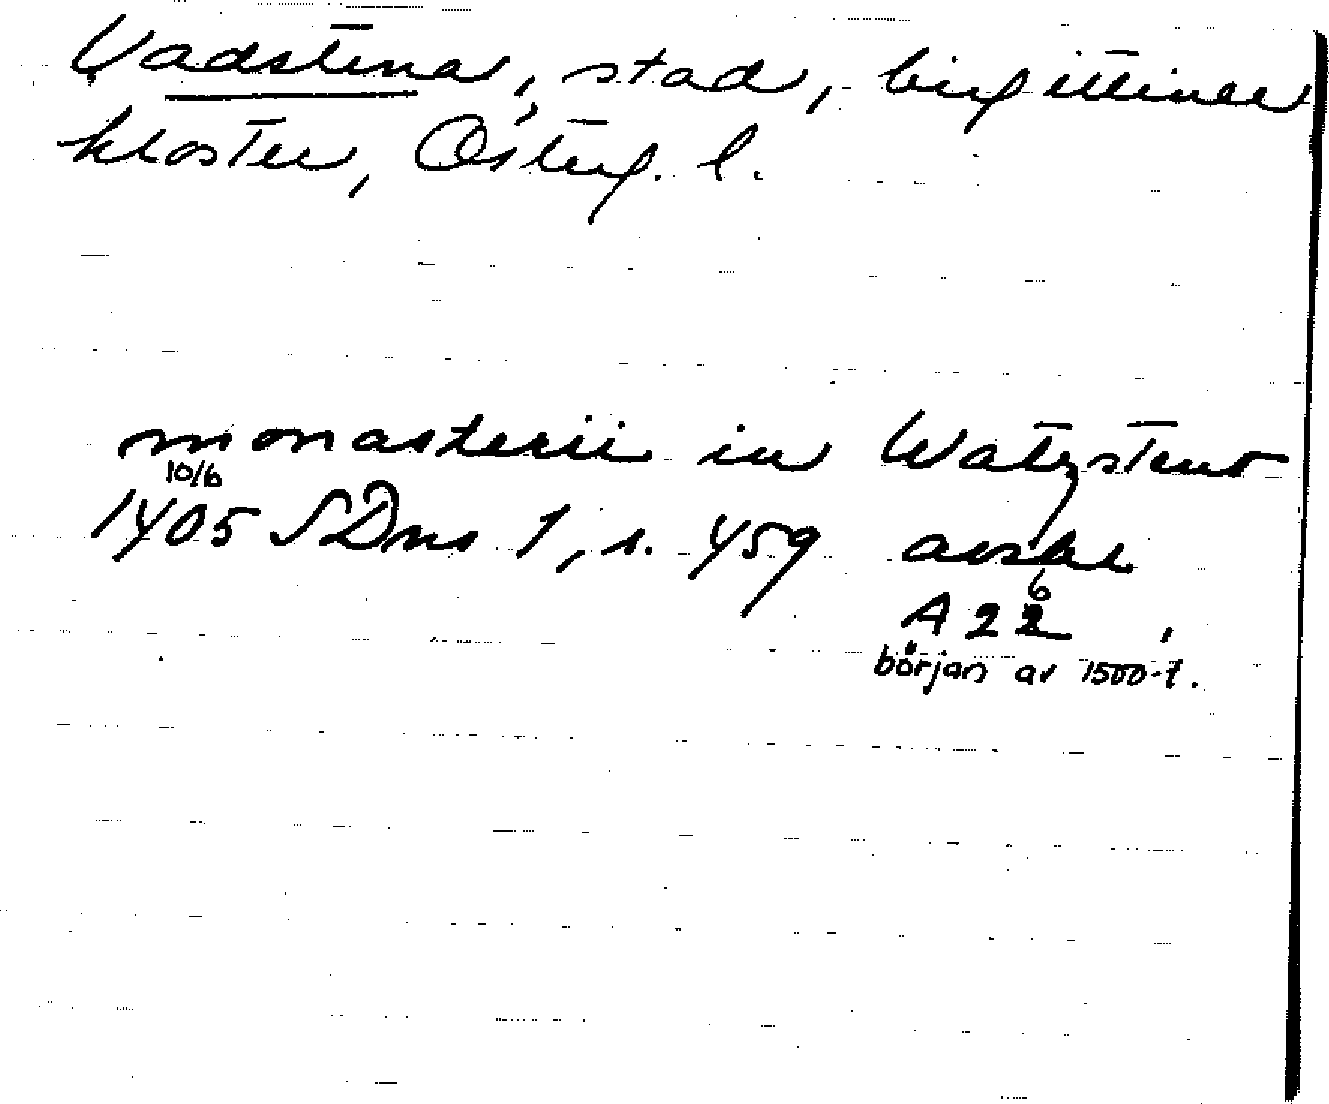 Vadstena, stad, birgittiner
kloster, Österg. l.
monasterii in Watzsteno
10/6
1405 SDns 1, s. 459 avskr
A 22 6
början av 1500-t.